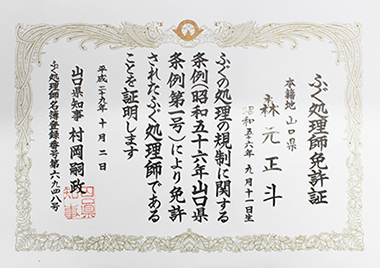 ふぐ処理師免許証
本籍地 山口県
森元正斗
昭和五六年 九月十一日生
ふぐの処理の規制に関する
条例(昭和五十六年山口県
条例第一号)により免許
されたふぐ処理師である
ことを証明します
平成二十九年 十月二日
山口県知事 村岡嗣政
ふぐ処理師名簿登録番号第六九四八号